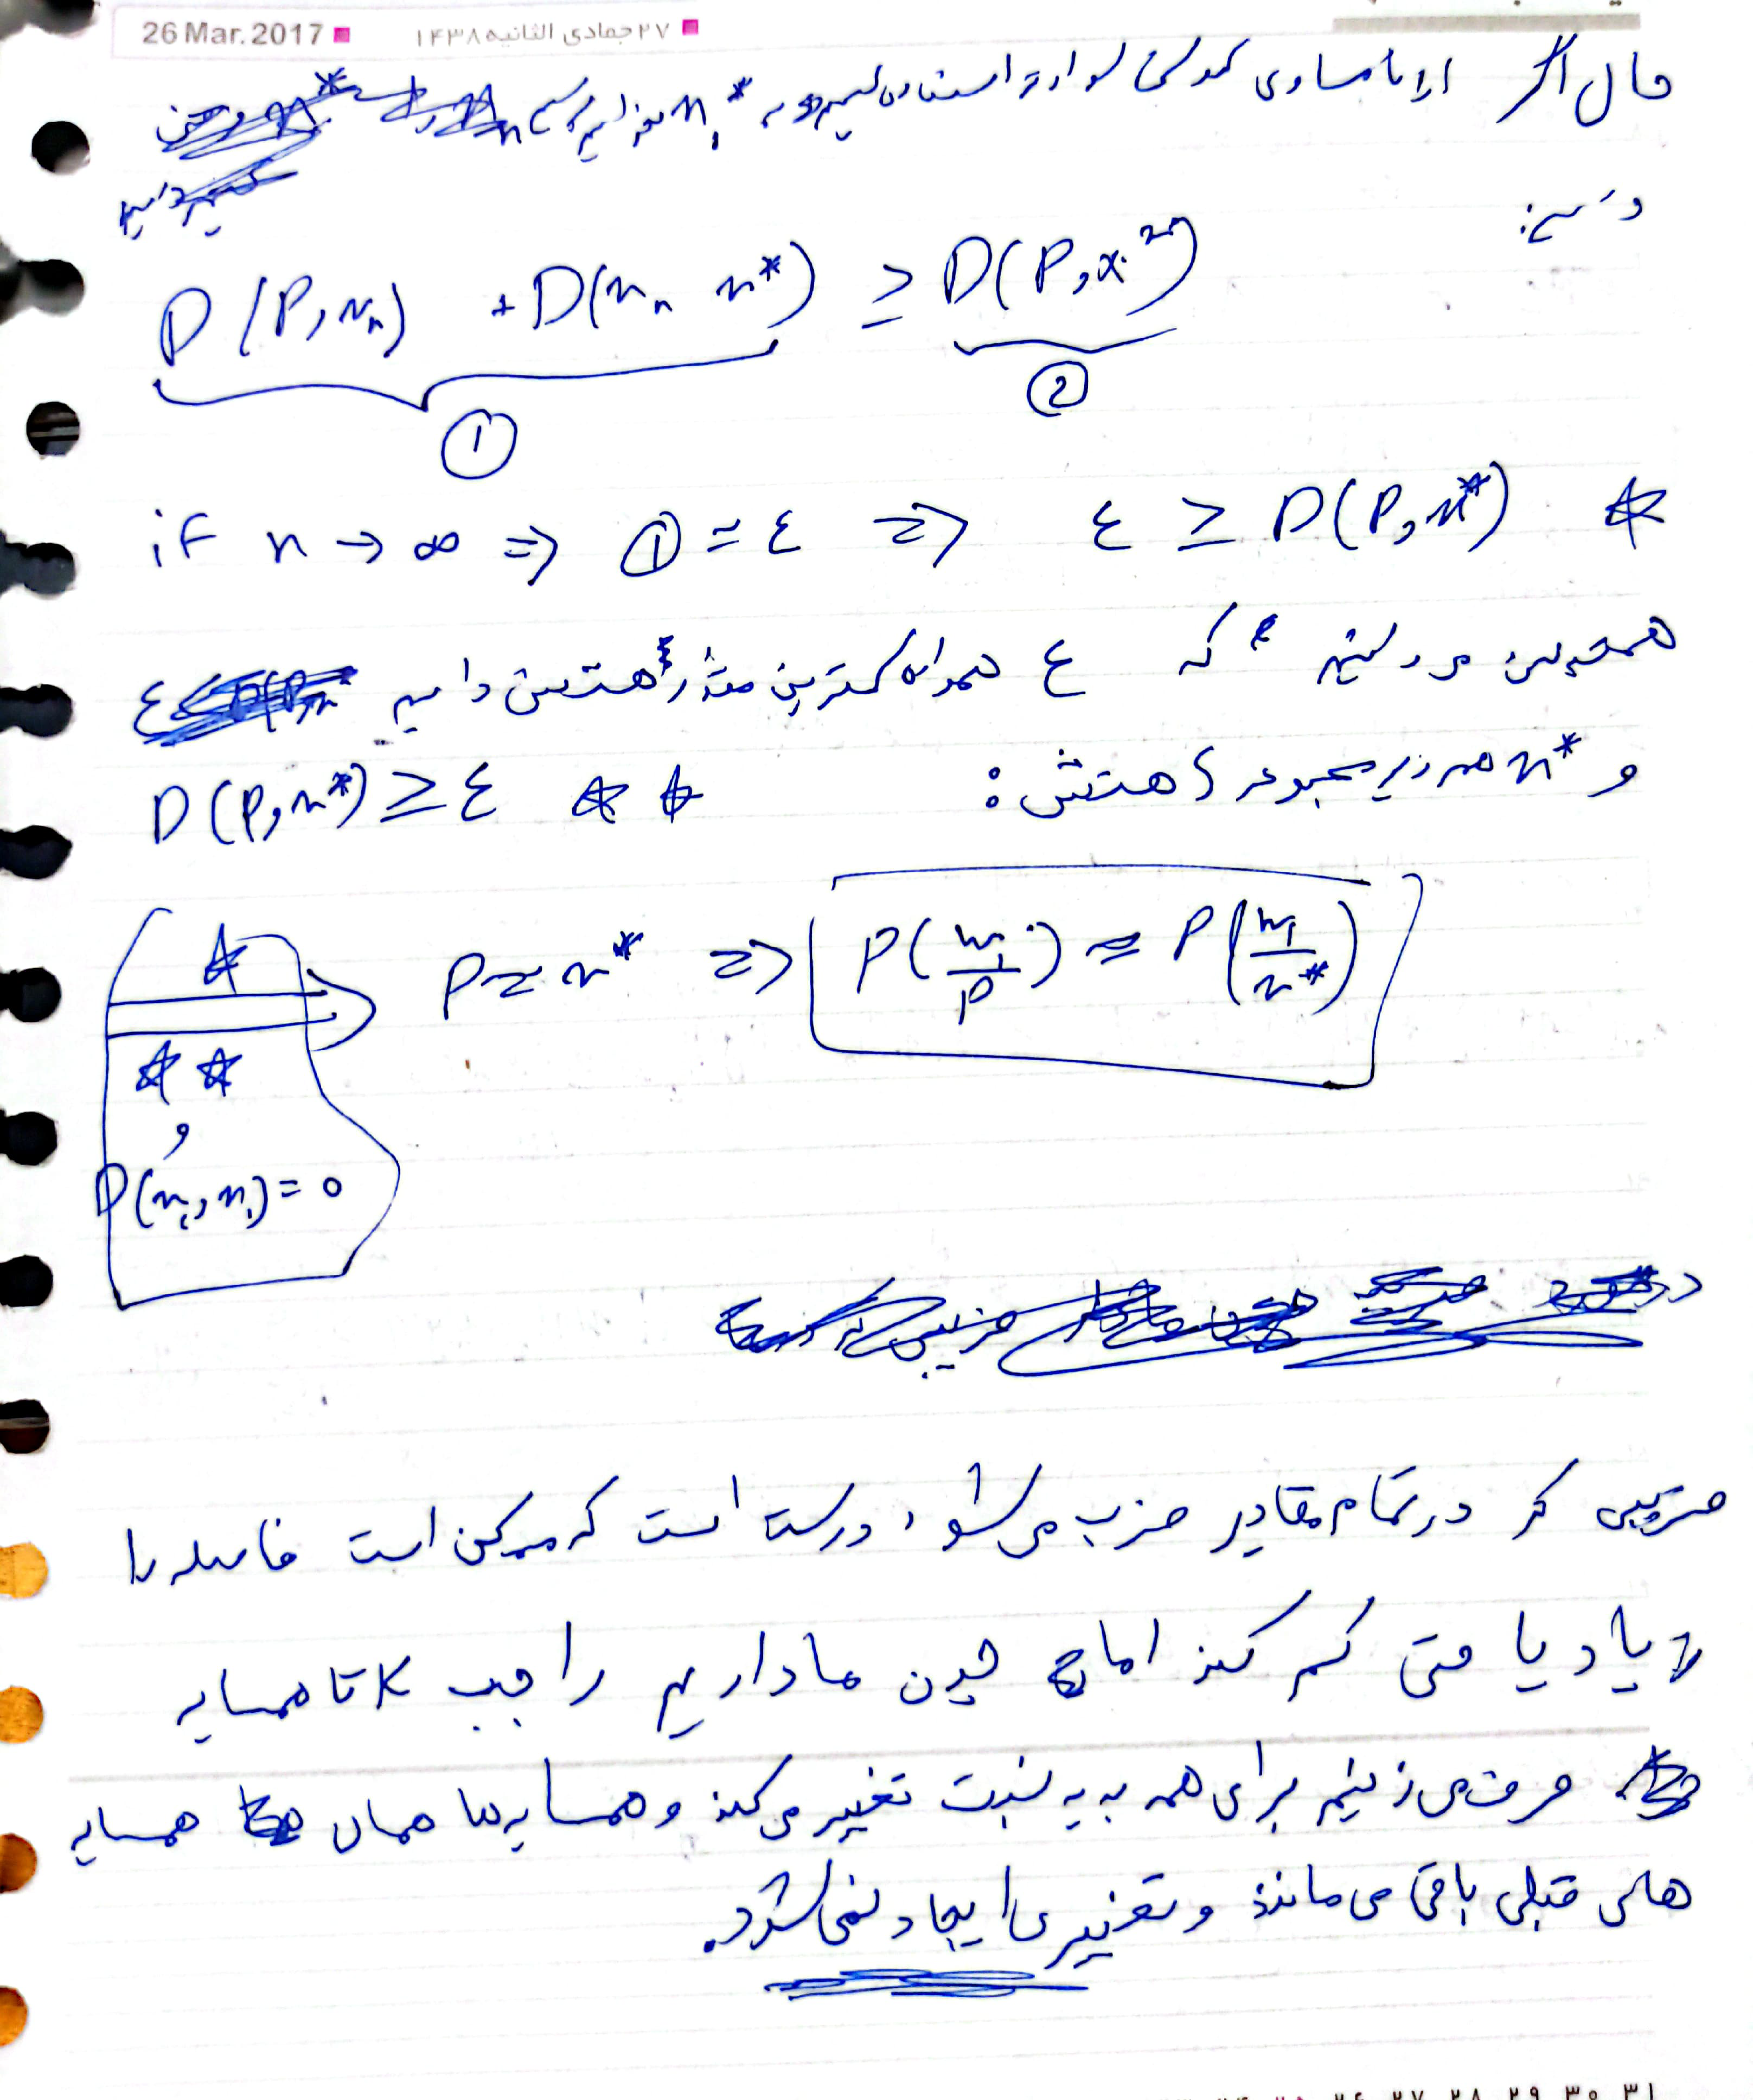 26 Mar. 2017 ۲۷ جمادی الثانیه ۱۴۳۸
حال اگر از نامساوی کوشی شوارتز استفاده کنیم و
داریم:
D(P, x_n) + D(x_n x*) ≥ D(P, x*)
① ②
if n → ∞ ⇒ ① = ε ⇒ ε ≥ D(P, x*) ☆
همچنین می‌دانیم که ε همواره کمترین مقدار هستش داریم
و x* هم زیر مجموعه هستش : D(P, x*) ≥ ε ☆☆
☆
☆☆
و
D(x_i, x_i) = 0
P ≈ x* ⇒ P(w_i/P) ≈ P(w_i/x*)
ضریبی که در تمام مقادیر ضرب می‌شود، درست است که ممکن است فاصله را
زیاد یا حتی کم کند اما چون ما داریم راجب K تا همسایه
حرف می‌زنیم برای همه به یه نسبت تغییر می‌کند و همسایه‌ها همان همسایه
های قبلی باقی می‌مانند و تغییری ایجاد نمی‌شود.
۲۶ ۲۷ ۲۸ ۲۹ ۳۰ ۳۱